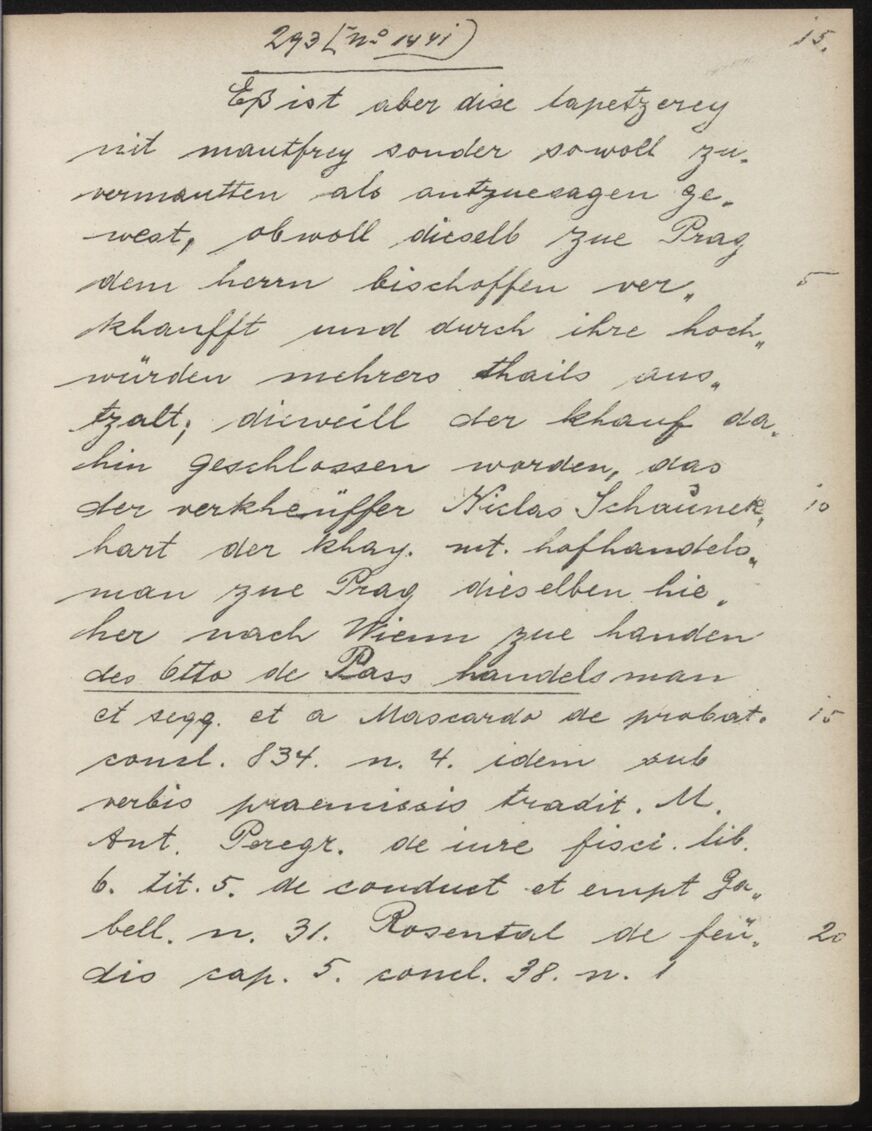 293 (No 1441) 15.
Eß ist aber dise tapetzerey
nit mautfrey sonder sowoll zu„
vermautten als antzuesagen ge„
west, obwoll dieselb zue Prag
dem herrn bischoffen ver„ 5
khaufft und durch ihre hoch„
würden mehrers thails aus„
tzalt; dieweill der khauf da„
hin geschlossen worden, das
der verkheüffer Niclas Schaünek„ 10
hart der khay. mt. hofhandels„
man zue Prag dieselben hie„
her nach Wienn zue handen
des Otto de Pass handelsman
et seqq. et a Mascardo de probat. 15
concl. 834. n. 4. idem sub
verbis praemissis tradit. M.
Ant. Peregr. de iure fisci. lib.
6. tit. 5. de conduct et empt Ga„
bell. n. 31. Rosental de feü„ 20
dis cap. 5. concl. 38. n. 1